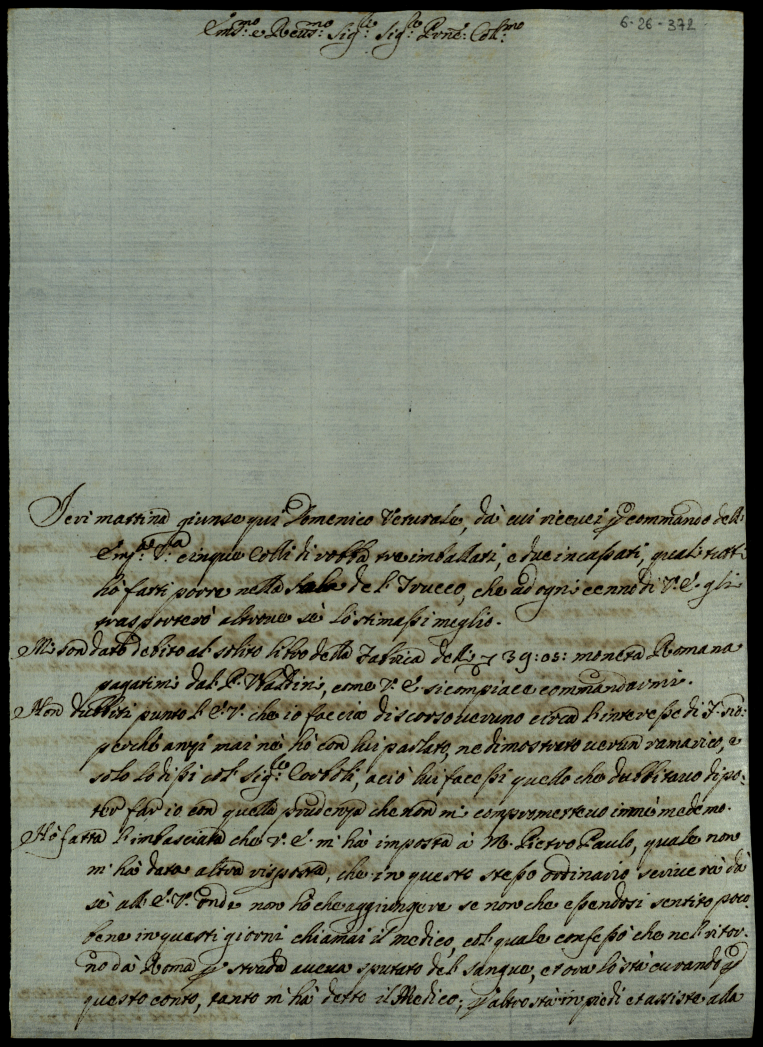 6-26-372
Em:mo e Reu:mo Sig:re Sig:re Prne: Col:mo
Ieri mattina giunse quì Domenico Veturale, dà cui riceuei p commando dell
Em:za V:ra cinque Colli di robba tre imballati, e due incassati, quali tutti
hò fatti porre nella sala del Trucco, che ad ogni cenno di V. E. gli
trasporterò altroue sè lo stimassi meglio.
Mi son dato debito al solito libro della Fabrica delli 39:05: moneta Romana
pagatimi dal S. Valdini, come V. E. si compiace commandarmi.
Non dubbiti punto l'E. V. che io faccia discorso ueruno circa l'interesse di
perche anzi mai nè hò con lui parlato, ne dimostrato uerun ramarico, e
solo lo dissi col Sig:re Corboli, aciò lui facessi quello che dubbitauo di po:
ter far io con quella prudenza che non mi compromетteuo in mè medemo.
Hò fatta l'imbasciata che V. E. m'hà imposta à M. Pietro Paulo, quale non
m'hà data altra risposta, che in questo stesso ordinario scriuerà dà
sè all'E. V. onde non hò che aggiungere se non che essendosi sentito poco
bene in questi giorni chiamai il medico, col quale confessò che nel ritor:
no dà Roma p strada aueua sputato del sangue, et ora lo stà curando p
questo conto, tanto m'hà detto il Medico; p altro stà in piedi et assiste alla